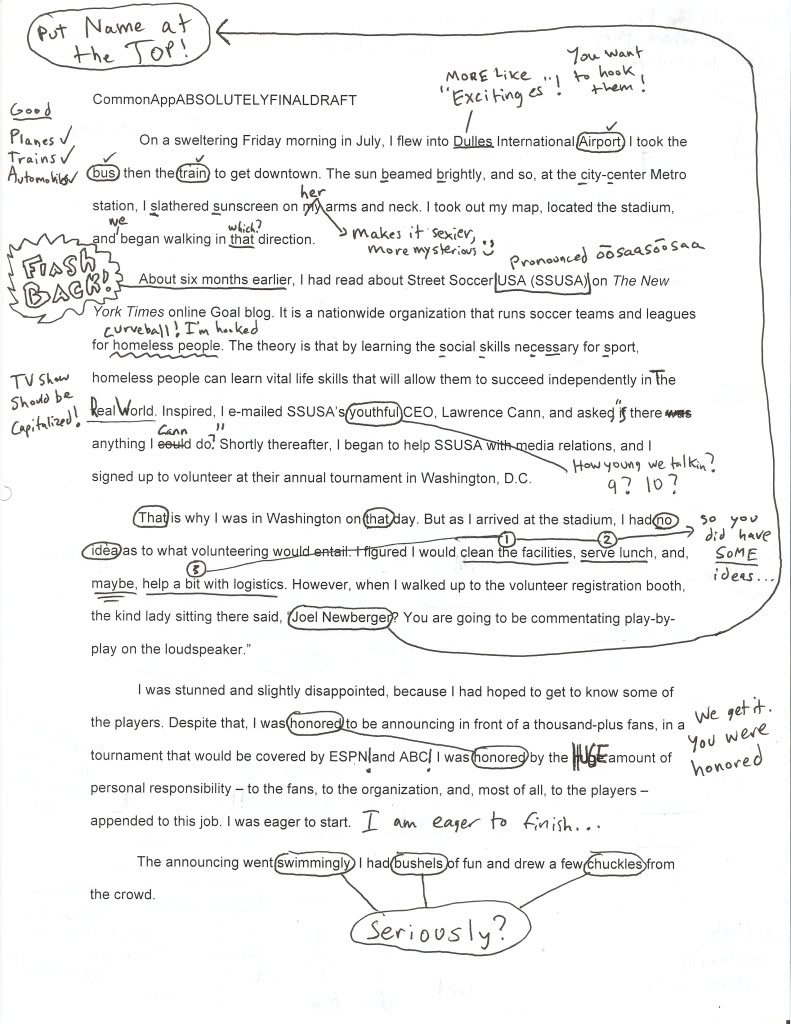 Put Name at
the TOP!
MORE LIKE
"Exciting es"!
You want
to hook
them!
CommonAppABSOLUTELYFINALDRAFT
Good
Planes ✓
Trains ✓
Automobiles ✓
On a sweltering Friday morning in July, I flew into Dulles International Airport. I took the
bus then the train to get downtown. The sun beamed brightly, and so, at the city-center Metro
her
station, I slathered sunscreen on my arms and neck. I took out my map, located the stadium,
we
which?
and began walking in that direction.
makes it sexier,
more mysterious
Pronounced ōōsaasōōsaa
FLASH
BACK!
About six months earlier, I had read about Street Soccer USA (SSUSA) on The New
York Times online Goal blog. It is a nationwide organization that runs soccer teams and leagues
curveball! I'm hooked
for homeless people. The theory is that by learning the social skills necessary for sport,
homeless people can learn vital life skills that will allow them to succeed independently in The
TV Show
Should be
Capitalized!
Real World. Inspired, I e-mailed SSUSA's youthful CEO, Lawrence Cann, and asked, "if there was
Cann
anything I could do?" Shortly thereafter, I began to help SSUSA with media relations, and I
signed up to volunteer at their annual tournament in Washington, D.C.
How young we talkin?
9? 10?
That is why I was in Washington on that day. But as I arrived at the stadium, I had no
1
2
idea as to what volunteering would entail. I figured I would clean the facilities, serve lunch, and,
3
maybe, help a bit with logistics. However, when I walked up to the volunteer registration booth,
so you
did have
SOME
ideas...
the kind lady sitting there said, "Joel Newberger? You are going to be commentating play-by-
play on the loudspeaker."
I was stunned and slightly disappointed, because I had hoped to get to know some of
the players. Despite that, I was honored to be announcing in front of a thousand-plus fans, in a
tournament that would be covered by ESPN! and ABC! I was honored by the HUGE amount of
We get it.
You were
honored
personal responsibility – to the fans, to the organization, and, most of all, to the players –
appended to this job. I was eager to start. I am eager to finish...
The announcing went swimmingly. I had bushels of fun and drew a few chuckles from
the crowd.
Seriously?